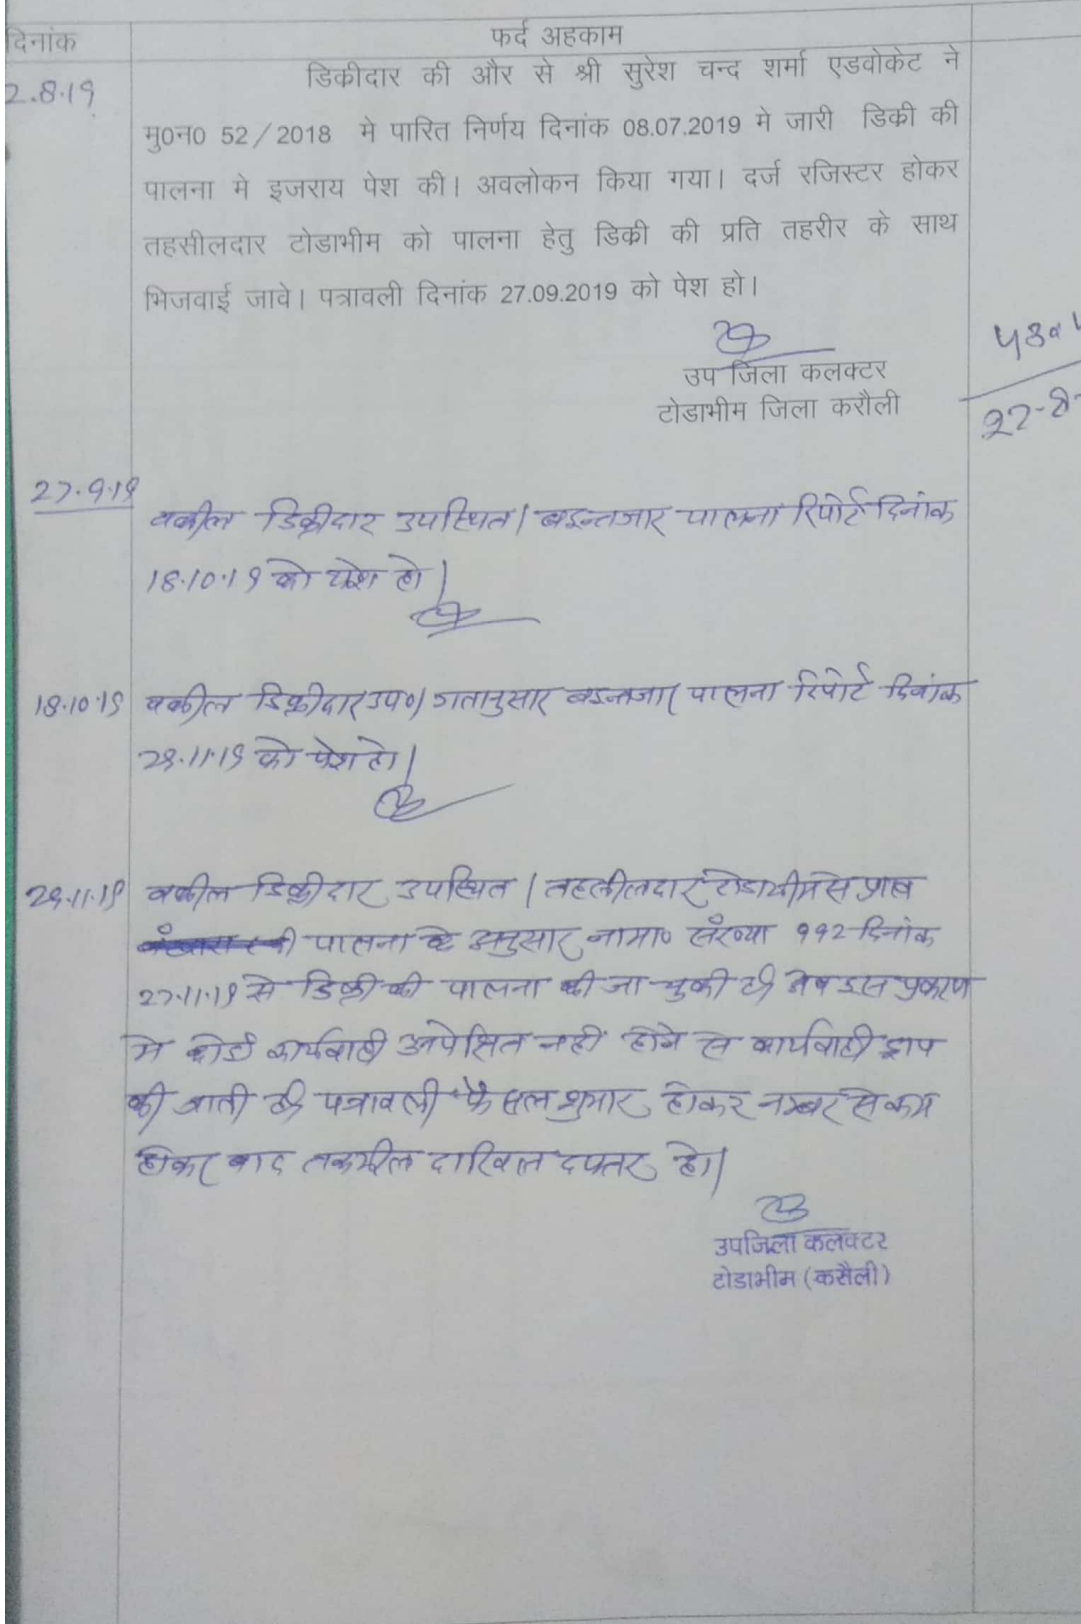 दिनांक
फर्द अहकाम
2.8.19
डिकीदार की और से श्री सुरेश चन्द शर्मा एडवोकेट ने
मु0न0 52/2018 मे पारित निर्णय दिनांक 08.07.2019 मे जारी डिकी की
पालना मे इजराय पेश की। अवलोकन किया गया। दर्ज रजिस्टर होकर
तहसीलदार टोडाभीम को पालना हेतु डिकी की प्रति तहरीर के साथ
भिजवाई जावे। पत्रावली दिनांक 27.09.2019 को पेश हो।
उप जिला कलक्टर
टोडाभीम जिला करौली
27.9.19
वकील डिक्रीदार उपस्थित। बइन्तजार पालना रिपोर्ट दिनांक
18.10.19 को पेश हो।
18.10.19 वकील डिक्रीदार उप०। गतानुसार बइन्तजार पालना रिपोर्ट दिनांक
29.11.19 को पेश हो।
29.11.19 वकील डिक्रीदार उपस्थित। तहसीलदार टोडाभीम से प्राप्त
पालना के अनुसार नामा० संख्या ११२ दिनांक
27.11.19 से डिक्री की पालना की जा चुकी है। अब इस प्रकरण
मे कोई कार्यवाही अपेक्षित नही होने से कार्यवाही ड्राप
की जाती है। पत्रावली फैसल शुमार होकर नम्बर से कम
होकर बाद तकमील दाखिल दफ्तर हो।
उपजिला कलक्टर
टोडाभीम (करौली)